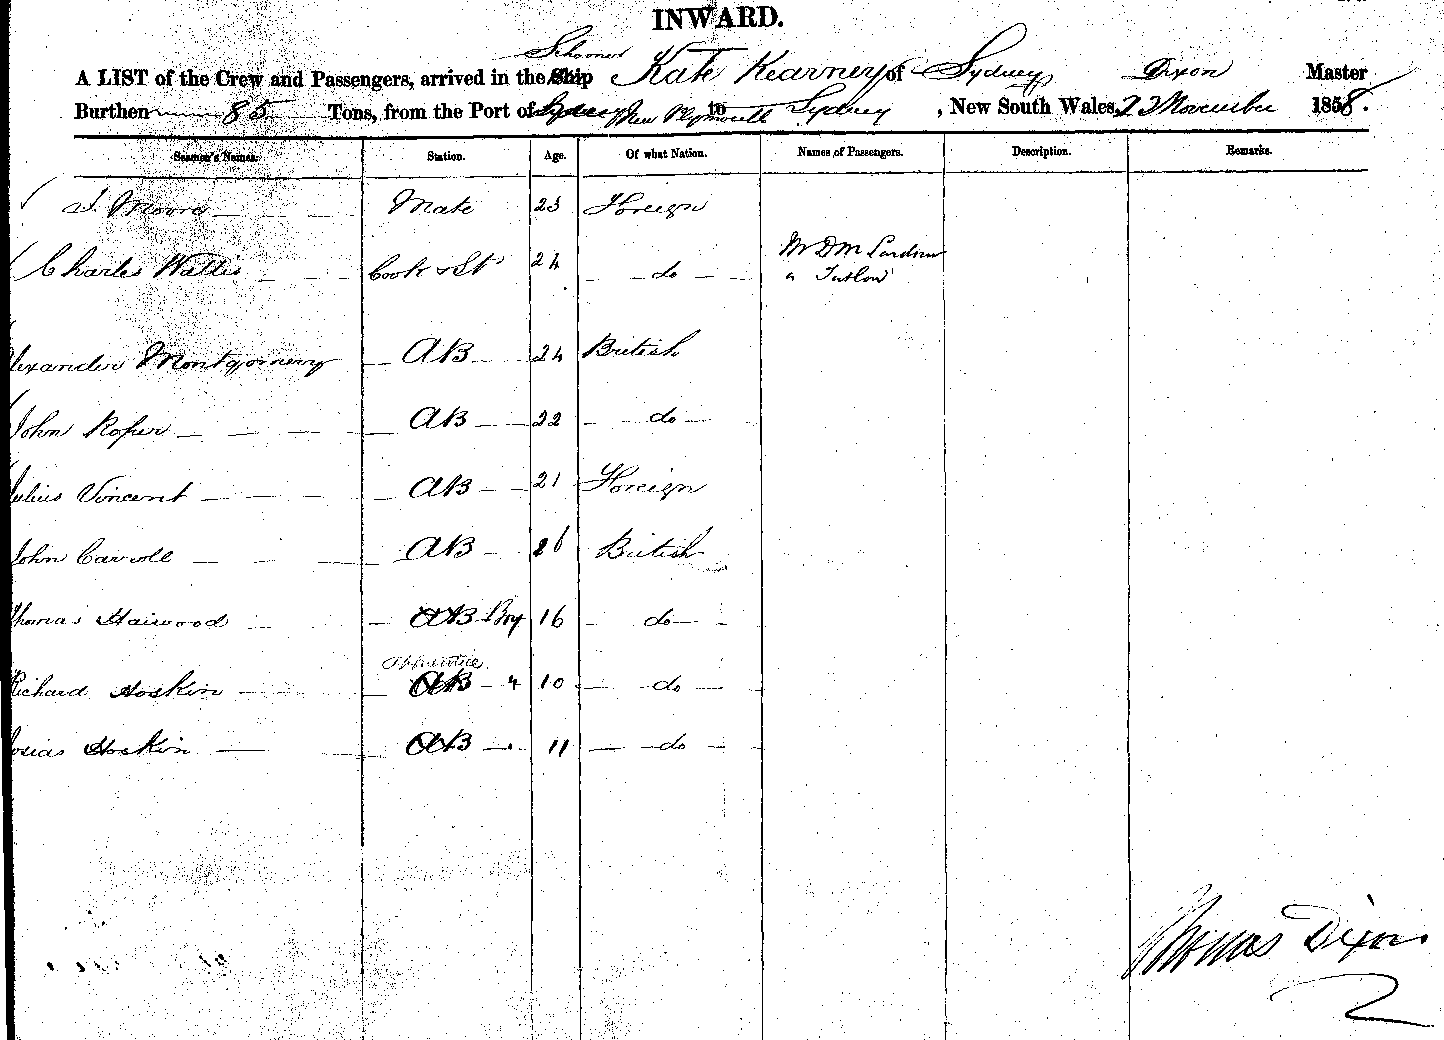 INWARD.
Schooner
A LIST of the Crew and Passengers, arrived in the Ship Kate Kearney of Sydney, Dixon Master
Burthen 85 Tons, from the Port of Sydney New Plymouth to Sydney, New South Wales, 23 November 1858.
Seamen's Names. Station. Age. Of what Nation. Names of Passengers. Description. Remarks.
J. Moore Mate 23 Foreign
Charles Wallis Cook & St 24 do Mr D M
" Tutlow
lexander Montgomery AB 24 British
John Roper AB 22 do
Julius Vincent AB 21 Foreign
John Carroll AB 26 British
Thomas Haiwood AB Boy 16 do
Apprentice
Richard Hoskin AB " 10 do
osias Hoskin AB " 11 do
Thomas Dixon